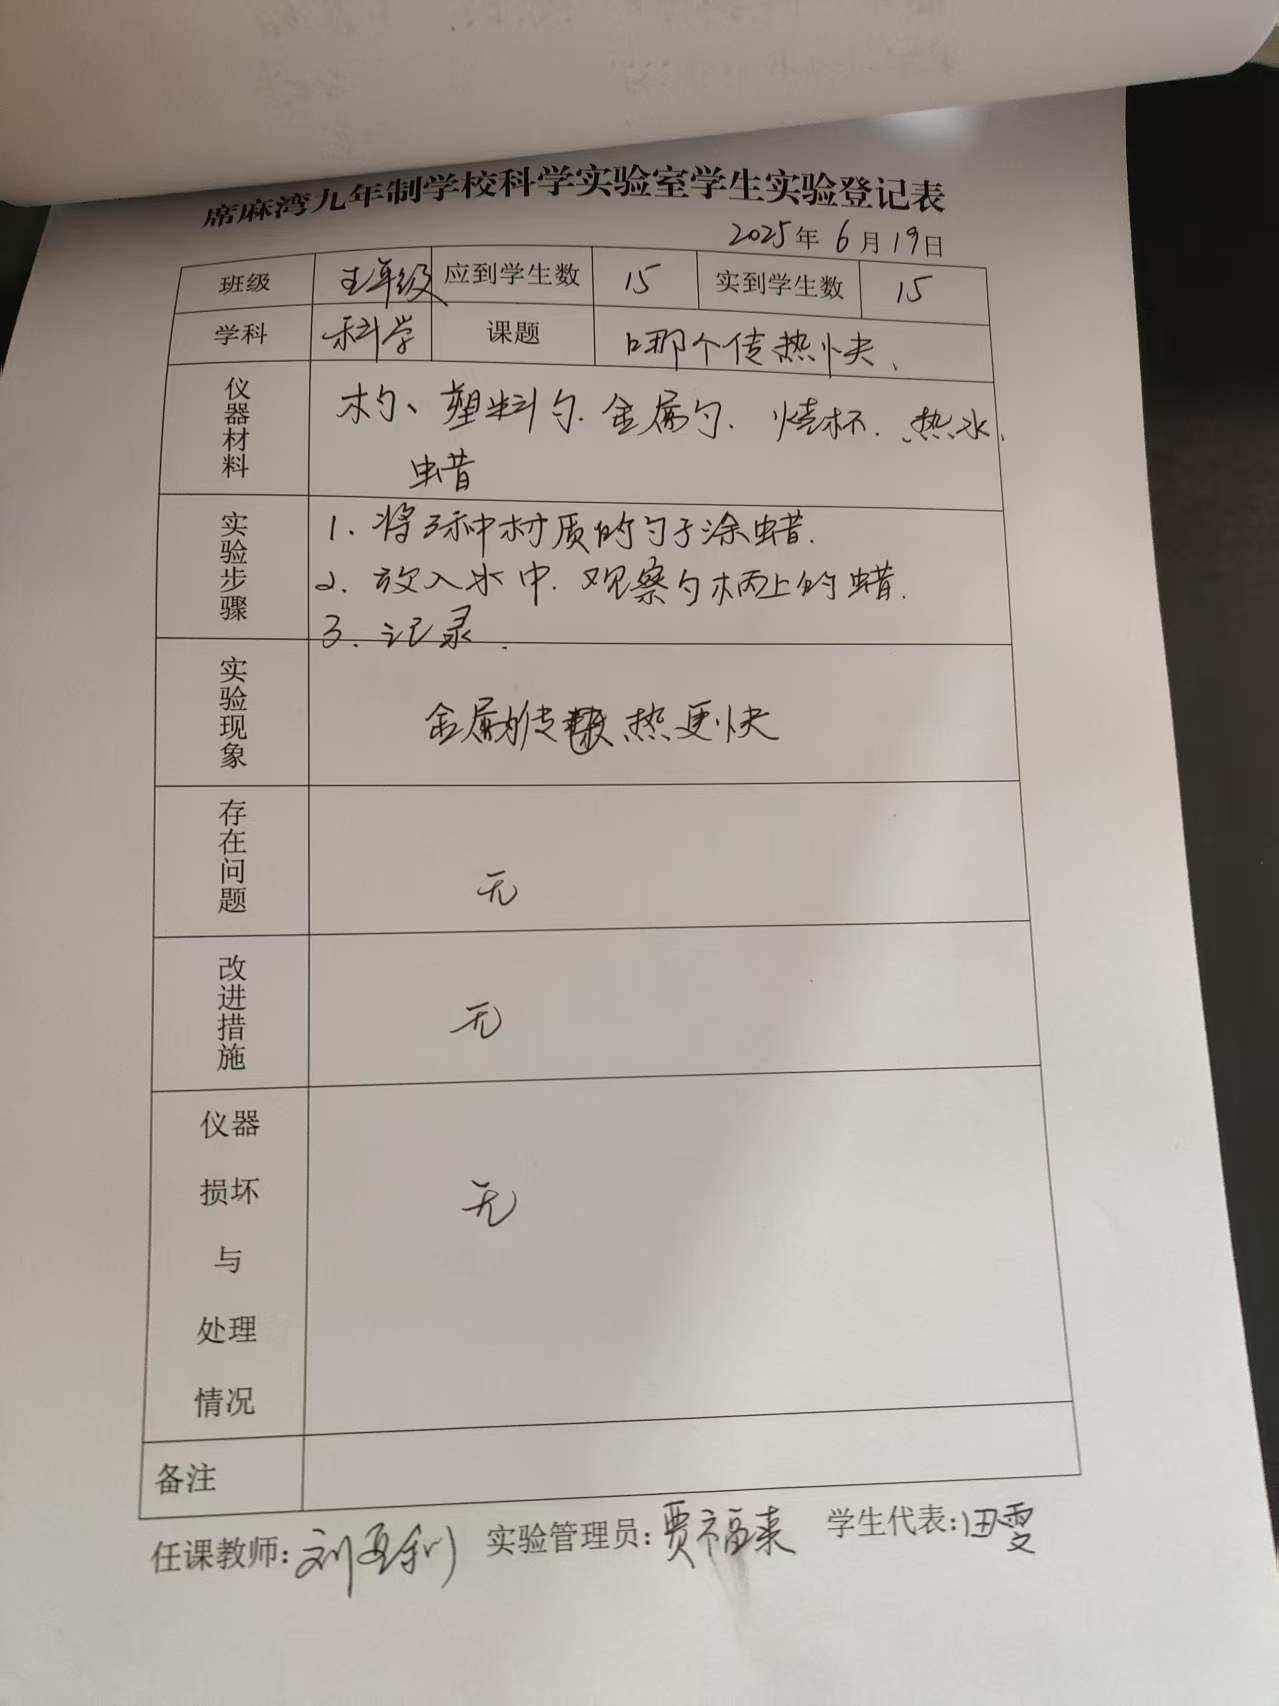 席麻湾九年制学校科学实验室学生实验登记表
2025年6月19日
班级 五年级 应到学生数 15 实到学生数 15
学科 科学 课题 哪个传热快、
仪器材料 木勺、塑料勺.金属勺.烧杯.热水.
蜡
实验步骤 1.将3种材质的勺子涂蜡.
2.放入水中.观察勺柄上的蜡.
3.记录.
实验现象 金属勺传热更快
存在问题 无
改进措施 无
仪器损坏与处理情况 无
备注
任课教师:刘 实验管理员:贾福来 学生代表:田雯